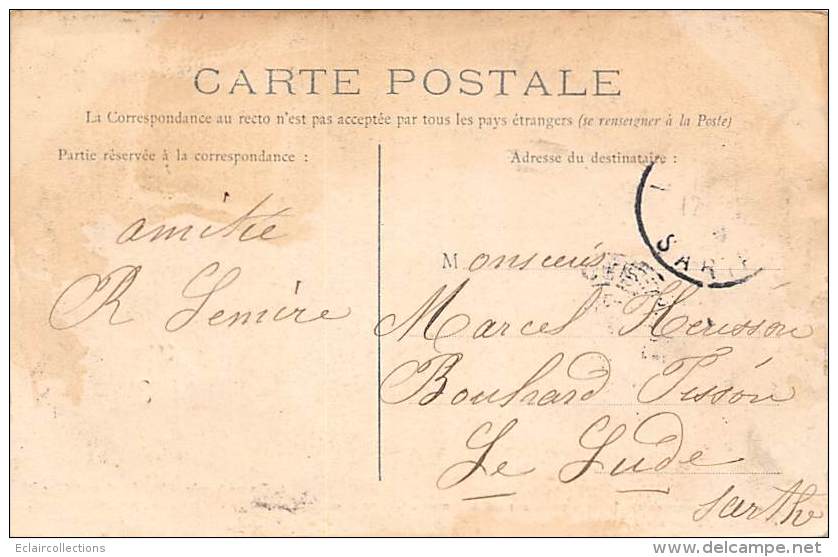 CARTE POSTALE
La Correspondance au recto n'est pas acceptée par tous les pays étrangers (se renseigner à la Poste)
Partie réservée à la correspondance :
Adresse du destinataire :
amitié
R Lemère
17
SARTHE
Monsieur
Marcel Herisson
Bouhard Tisson
Le Lude
Sarthe
Eclaircollections
delcampe.net